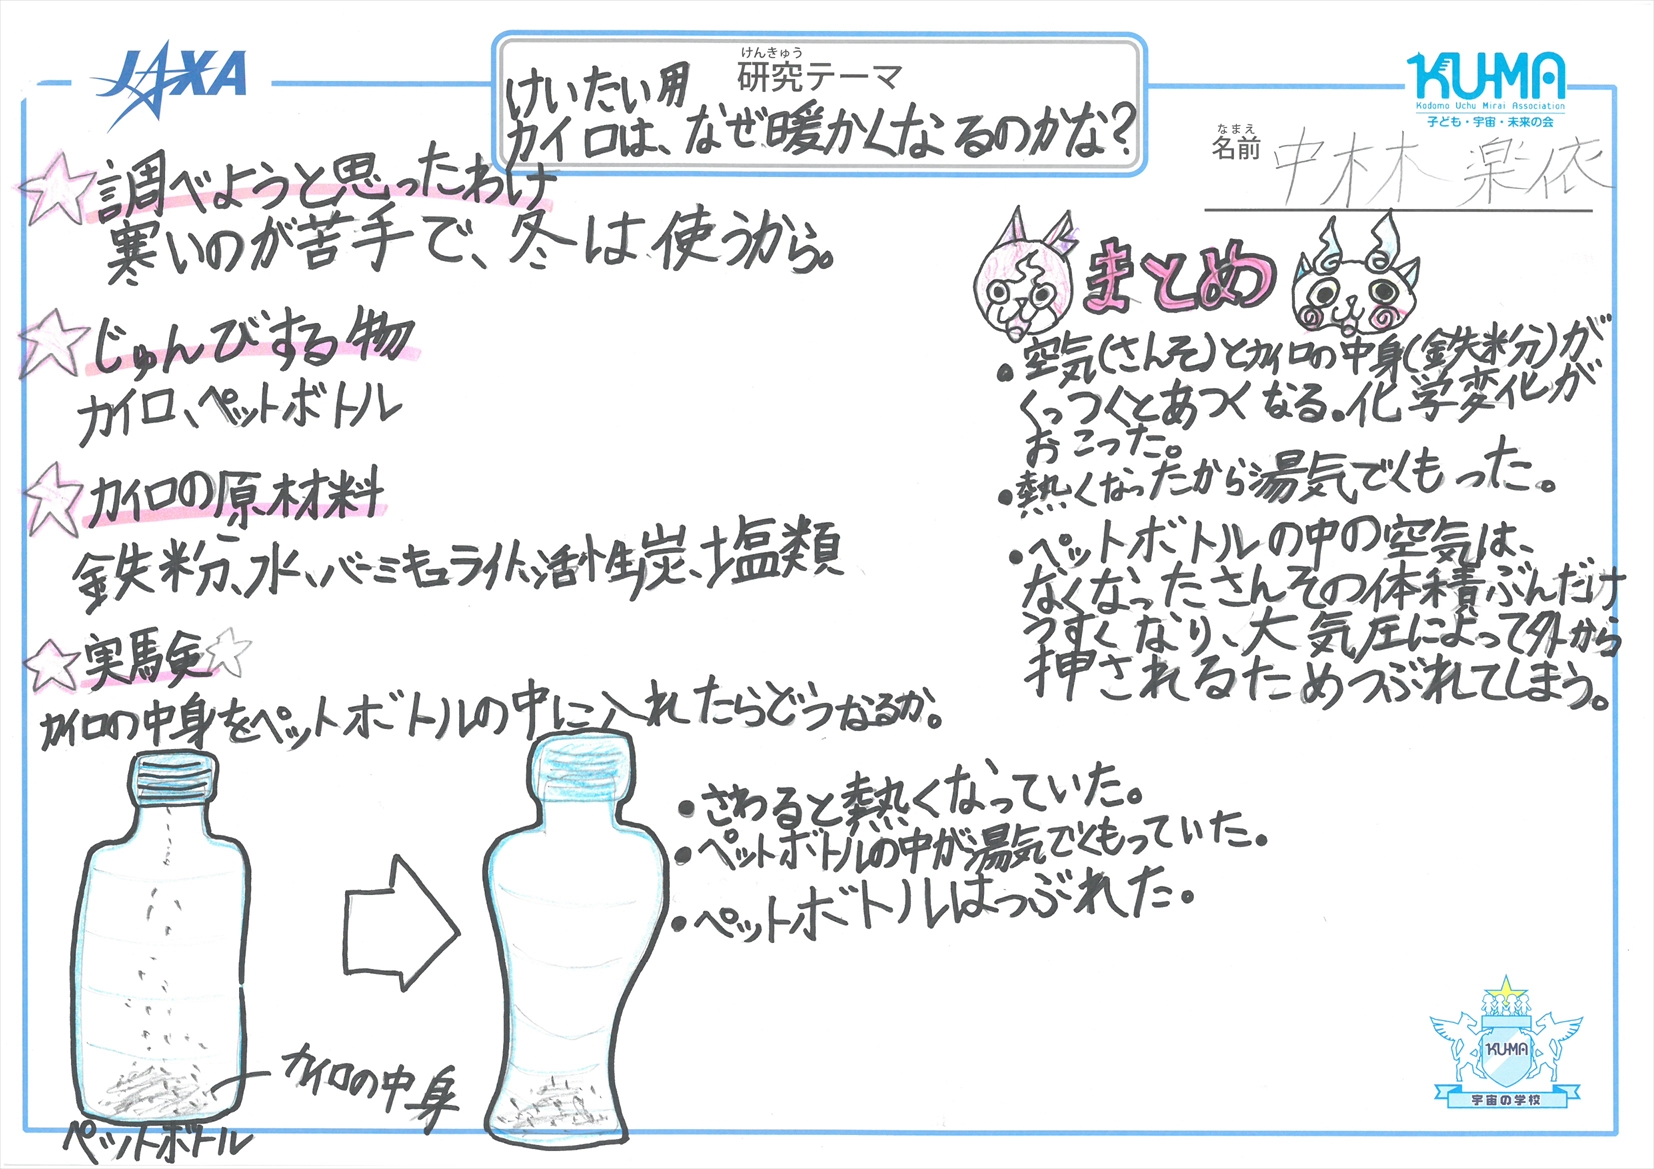 JAXA
けんきゅう
研究テーマ
けいたい用
カイロは、なぜ暖かくなるのかな?
KU-MA
Kodomo Uchu Mirai Association
子ども・宇宙・未来の会
なまえ
名前 中林 楽依
調べようと思ったわけ
寒いのが苦手で、冬は使うから。
じゅんびする物
カイロ、ペットボトル
カイロの原材料
鉄粉、水、バーミキュライト、活性炭、塩類
実験
カイロの中身をペットボトルの中に入れたらどうなるか。
カイロの中身
ペットボトル
・さわると熱くなっていた。
・ペットボトルの中が湯気でくもっていた。
・ペットボトルはつぶれた。
まとめ
・空気(さんそ)とカイロの中身(鉄粉分)が
くっつくとあつくなる。化学変化が
おこった。
・熱くなったから湯気でくもった。
・ペットボトルの中の空気は、
なくなったさんその体積ぶんだけ
うすくなり、大気圧によって外から
押されるためつぶれてしまう。
KU-MA
宇宙の学校